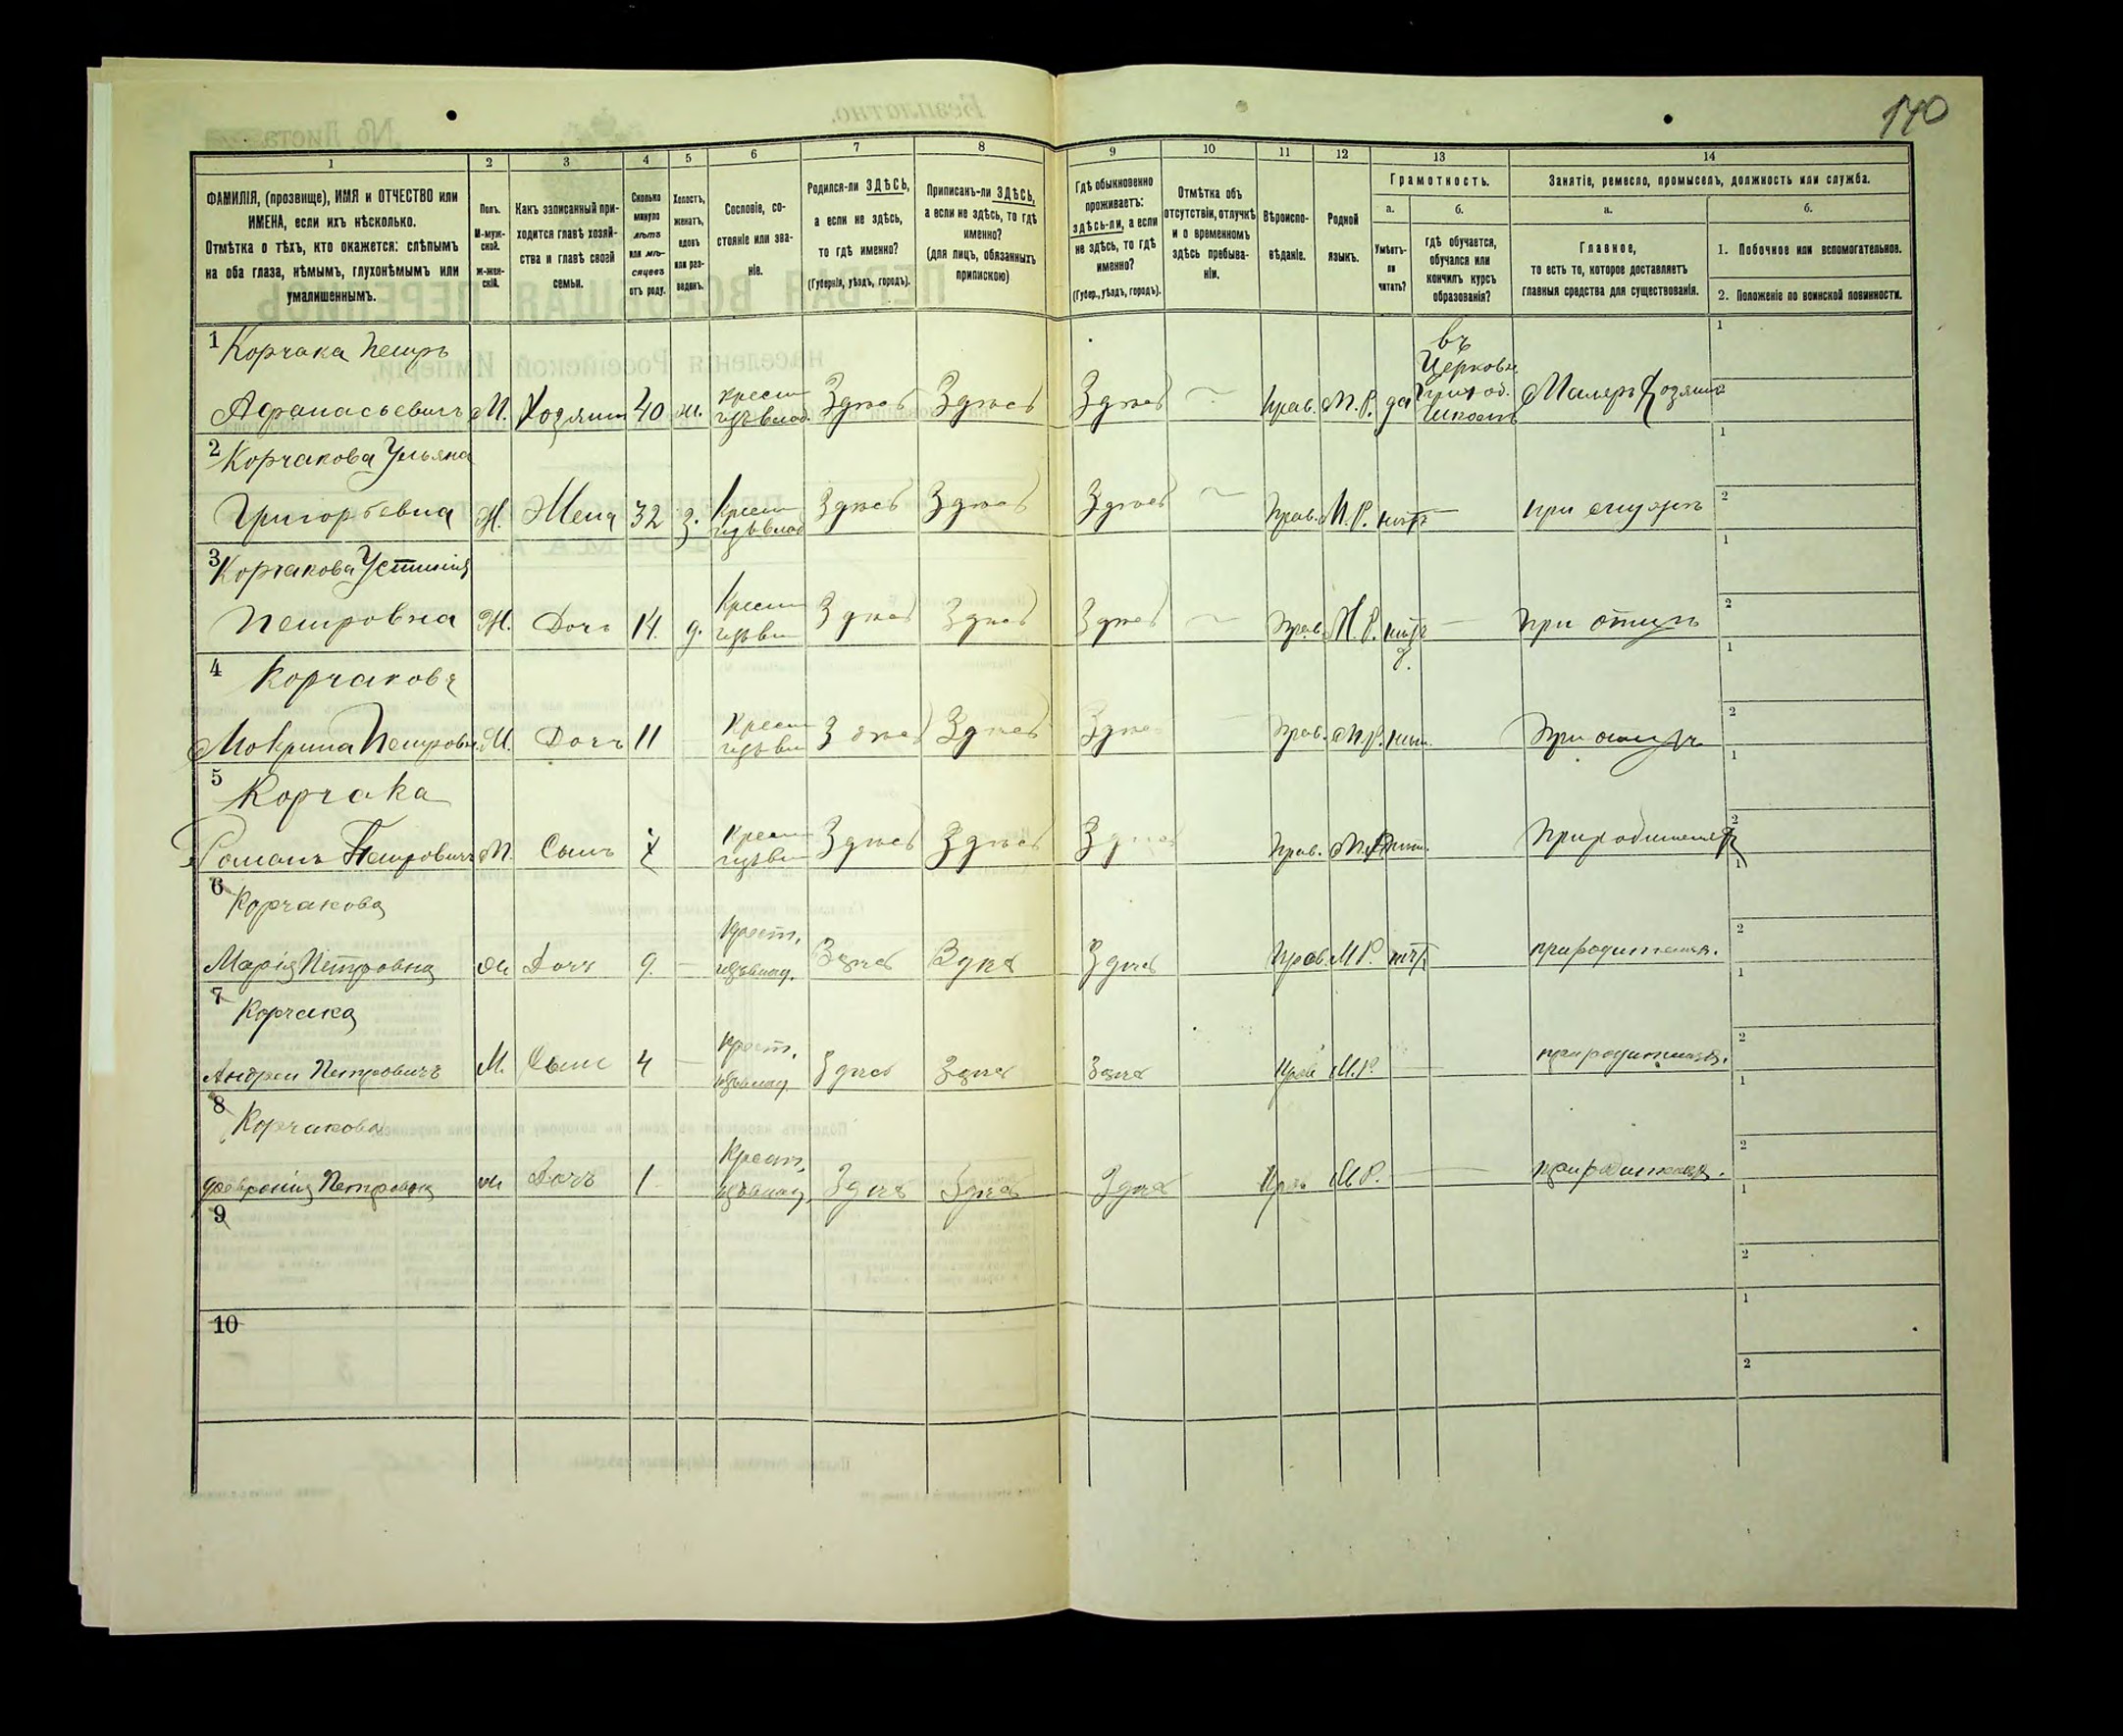 140
1 2 3 4 5 6 7 8 9 10 11 12 13 14
ФАМИЛІЯ, (прозвище), ИМЯ и ОТЧЕСТВО или
ИМЕНА, если ихъ нѣсколько.
Отмѣтка о тѣхъ, кто окажется: слѣпымъ
на оба глаза, нѣмымъ, глухонѣмымъ или
умалишеннымъ.
Полъ.
М-муж-
ской.
Ж-жен-
скій.
Какъ записанный при-
ходится главѣ хозяй-
ства и главѣ своей
семьи.
Сколько
минуло
лѣтъ
или мѣ-
сяцевъ
отъ роду.
Холостъ,
женатъ,
вдовъ
или раз-
веденъ.
Сословіе, со-
стояніе или зва-
ніе.
Родился-ли ЗДѢСЬ,
а если не здѣсь,
то гдѣ именно?
(Губернія, уѣздъ, городъ).
Приписанъ-ли ЗДѢСЬ,
а если не здѣсь, то гдѣ
именно?
(для лицъ, обязанныхъ
припискою)
Гдѣ обыкновенно
проживаетъ:
здѣсь-ли, а если
не здѣсь, то гдѣ
именно?
(Губер., уѣздъ, городъ).
Отмѣтка объ
отсутствіи, отлучкѣ
и о временномъ
здѣсь пребыва-
ніи.
Вѣроиспо-
вѣданіе.
Родной
языкъ.
Грамотность.
а.
Умѣетъ-
ли
читать?
б.
гдѣ обучается,
обучался или
кончилъ курсъ
образованія?
Занятіе, ремесло, промыселъ, должность или служба.
а.
Главное,
то есть то, которое доставляетъ
главныя средства для существованія.
б.
1. Побочное или вспомогательное.
2. Положеніе по воинской повинности.
1 Корчака Петръ
Афанасьевичъ М. Хозяинъ 40 ж. Здѣсь Здѣсь Здѣсь Прав. М.Р. да
въ
Церковн.
Приход.
Школѣ
2 Корчакова Ульяна
Григорьевна Ж. Жена 32 З. Здѣсь Здѣсь Здѣсь Прав. М.Р. нѣтъ
3 Корчакова Устинія
Петровна Ж. Дочь 14 д. Здѣсь Здѣсь Здѣсь Прав. М.Р. нѣтъ При отцѣ
4 Корчакова
Мокрина Петровн. Дочь 11 Здѣсь Здѣсь Здѣсь Прав. М.Р. При отцѣ
5 Корчака
Романъ Петровичъ М. Сынъ Здѣсь Здѣсь Здѣсь Прав. М.Р. При родителях
6 Корчакова
Марія Петровна Ж Дочь 9. Крест. Здѣсь Здѣсь Здѣсь Прав. М.Р. нѣтъ при родителях.
7 Корчака
Андрей Петровичъ М. Сынъ 4 Крест. Здѣсь Здѣсь Здѣсь Прав М.Р. при родителях.
8 Корчакова
Февронія Петровна Ж Дочь 1 Крест. Здѣсь Здѣсь Здѣсь Прав М.Р. при родителях.
9
10